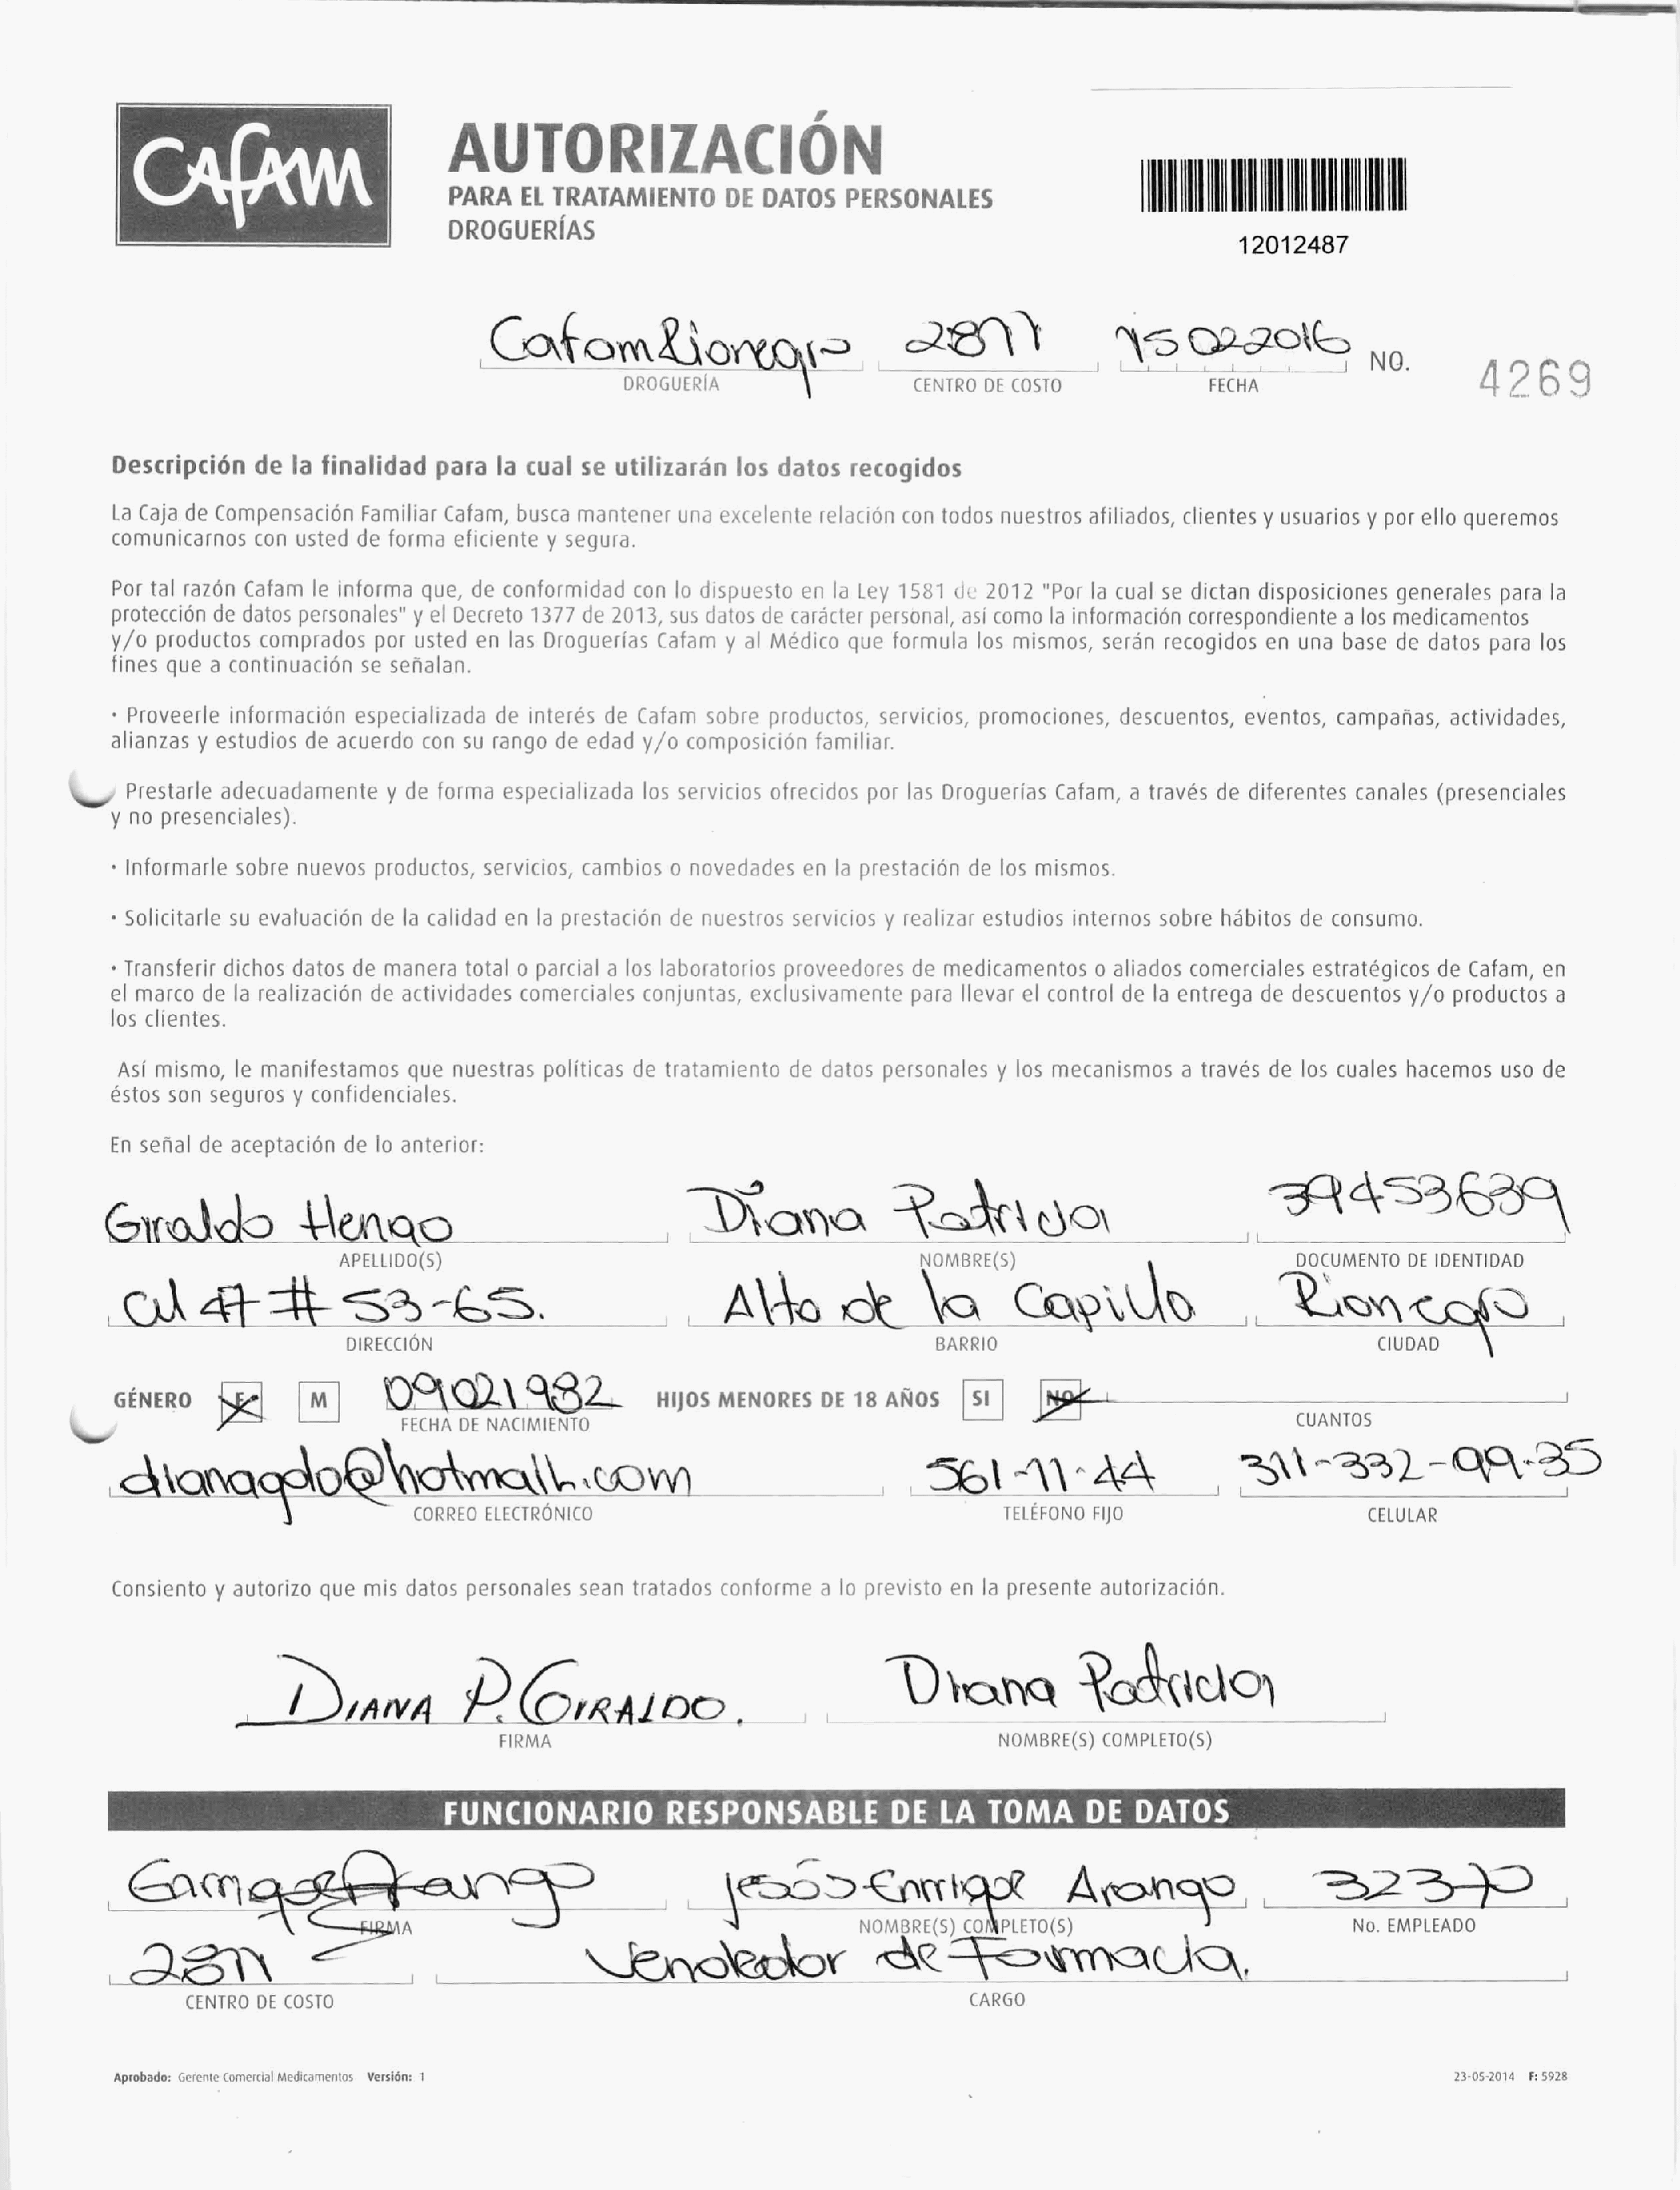 CAFAM
AUTORIZACIÓN
PARA EL TRATAMIENTO DE DATOS PERSONALES
DROGUERÍAS
12012487
Cafam Rionegro 2877 15022016 NO. 4269
DROGUERÍA CENTRO DE COSTO FECHA
Descripción de la finalidad para la cual se utilizarán los datos recogidos
La Caja de Compensación Familiar Cafam, busca mantener una excelente relación con todos nuestros afiliados, clientes y usuarios y por ello queremos
comunicarnos con usted de forma eficiente y segura.
Por tal razón Cafam le informa que, de conformidad con lo dispuesto en la Ley 1581 de 2012 "Por la cual se dictan disposiciones generales para la
protección de datos personales" y el Decreto 1377 de 2013, sus datos de carácter personal, así como la información correspondiente a los medicamentos
y/o productos comprados por usted en las Droguerías Cafam y al Médico que formula los mismos, serán recogidos en una base de datos para los
fines que a continuación se señalan.
• Proveerle información especializada de interés de Cafam sobre productos, servicios, promociones, descuentos, eventos, campañas, actividades,
alianzas y estudios de acuerdo con su rango de edad y/o composición familiar.
Prestarle adecuadamente y de forma especializada los servicios ofrecidos por las Droguerías Cafam, a través de diferentes canales (presenciales
y no presenciales).
• Informarle sobre nuevos productos, servicios, cambios o novedades en la prestación de los mismos.
• Solicitarle su evaluación de la calidad en la prestación de nuestros servicios y realizar estudios internos sobre hábitos de consumo.
• Transferir dichos datos de manera total o parcial a los laboratorios proveedores de medicamentos o aliados comerciales estratégicos de Cafam, en
el marco de la realización de actividades comerciales conjuntas, exclusivamente para llevar el control de la entrega de descuentos y/o productos a
los clientes.
Así mismo, le manifestamos que nuestras políticas de tratamiento de datos personales y los mecanismos a través de los cuales hacemos uso de
éstos son seguros y confidenciales.
En señal de aceptación de lo anterior:
Giraldo Henao Diana Patricia 39453639
APELLIDO(S) NOMBRE(S) DOCUMENTO DE IDENTIDAD
Cll 47 # 53-65. Alto de la Capilla Rionegro
DIRECCIÓN BARRIO CIUDAD
GÉNERO F M 09021982 HIJOS MENORES DE 18 AÑOS SI NO
FECHA DE NACIMIENTO CUANTOS
dianagdo@hotmail.com 561-11-44 311-332-99-35
CORREO ELECTRÓNICO TELÉFONO FIJO CELULAR
Consiento y autorizo que mis datos personales sean tratados conforme a lo previsto en la presente autorización.
DIANA P. GIRALDO. Diana Patricia
FIRMA NOMBRE(S) COMPLETO(S)
FUNCIONARIO RESPONSABLE DE LA TOMA DE DATOS
Enrique Arango Jesús Enrrique Arango 32370
FIRMA NOMBRE(S) COMPLETO(S) No. EMPLEADO
2877 Vendedor de Farmacia.
CENTRO DE COSTO CARGO
Aprobado: Gerente Comercial Medicamentos Versión: 1 23-05-2014 F: 5928